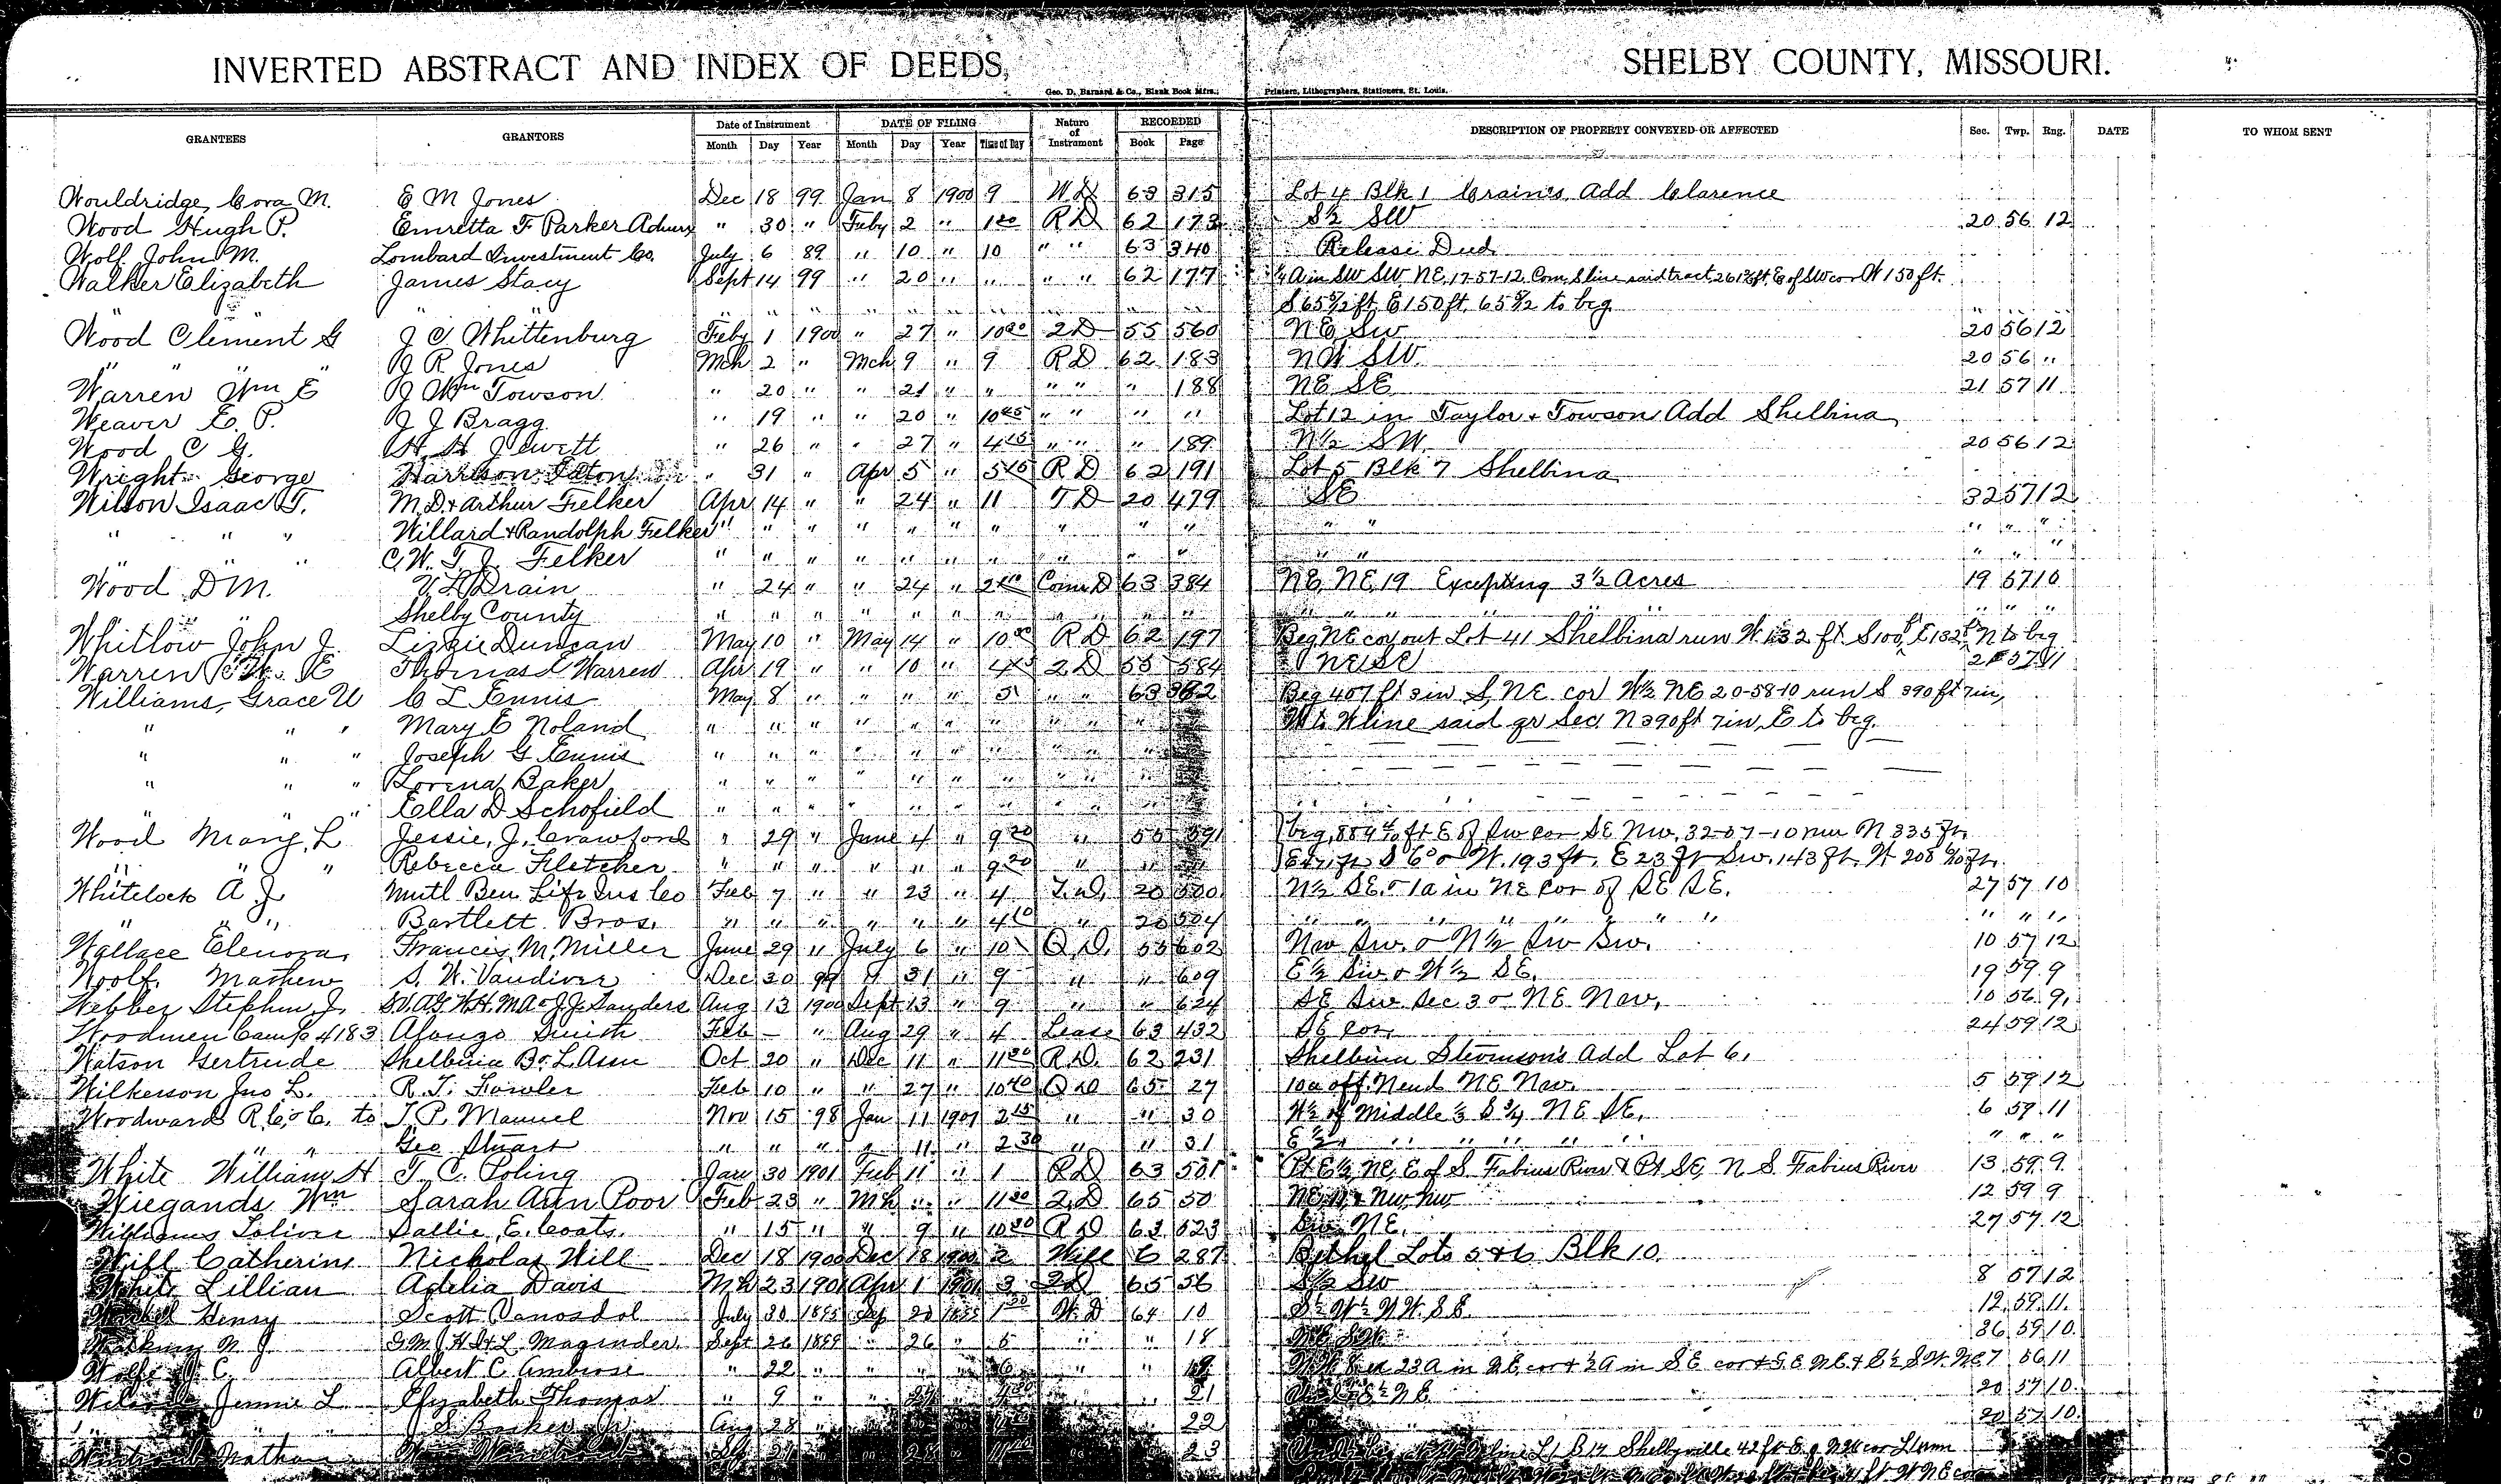 INVERTED ABSTRACT AND INDEX OF DEEDS, SHELBY COUNTY, MISSOURI.
Geo. D. Barnard & Co., Blank Book Mfrs., Printers, Lithographers, Stationers, St. Louis.
GRANTEES GRANTORS Date of Instrument DATE OF FILING Nature of Instrument RECORDED DESCRIPTION OF PROPERTY CONVEYED OR AFFECTED Sec. Twp. Rng. DATE TO WHOM SENT
Month Day Year Month Day Year Time of Day Book Page
Wouldridge, Cora M. E M Jones Dec 18 99 Jan 8 1900 9 W D 63 315 Lot 4 Blk 1 Crain's Add Clarence
Wood Hugh P. Emretta F Parker Admx " 30 " Feby 2 " 1 R D 62 173 S½ SW 20 56 12
Wolf John M. Lombard Investment Co. July 6 89 " 10 " 10 " " 63 340 Release Deed
Walker Elizabeth James Stacy Sept 14 99 " 20 " " " " 62 177 ¼ A in SW SW NE, 17-57-12 Com S line said tract ft E of SW cor W 150 ft.
" " " " " " " " " " " S 65 ft, E 150 ft, 65 to beg
Wood Clement G J C Whittenburg Feby 1 1900 " 27 " 10 2 D 55 560 NE SW 20 56 12
" " " J R Jones Mch 2 " Mch 9 " 9 R D 62 183 NW SW. 20 56 "
Warren Wm E J Wm Towson " 20 " " 21 " " " " " 188 NE SE 21 57 11
Weaver E. P. J J Bragg " 19 " " 20 " 10 " " " " Lot 12 in Taylor & Towson Add Shelbina
Wood C G. H. H Jewett " 26 " " 27 " 4 " " " 189 N½ SW. 20 56 12
Wright George Harrison Eaton " 31 " Apr 5 " 5 R D 62 191 Lot 5 Blk 7 Shelbina
Wilson Isaac T. M. D. & Arthur Felker Apr 14 " " 24 " 11 T D 20 479 SE 32 57 12
" " " Willard & Randolph Felker " " " " " " " " " " " " " " "
" " " C. W. T. J. Felker " " " " " " " " " " " " " "
Wood D M. V. L. Drain " 24 " " 24 " 2 Com D 63 384 NE, NE, 19 Excepting 3½ Acres 19 57 10
" Shelby County " " " " " " " " " " " " " " " " "
Whitlow John J. Lizzie Duncan May 10 " May 14 " 10 R D 62 197 Beg NE cor out Lot 41 Shelbina run W 132 ft S 100 ft, E 132 ft, N to beg
Warren E Thomas L Warren Apr 19 " " 10 " 4 2 D 55 584 NE SE 21 57 11
Williams, Grace W C L Ennis May 8 " " " " 5 63 382 Beg 407 ft 3 in S, NE cor W½ NE 20-58-10 run S 390 ft 7 in,
" " " Mary E Noland " " " " " " " " " " W to W line said qr Sec N 390 ft 7 in, E to beg.
" " " Joseph G Ennis " " " " " " " " " "
" " " Lorena Baker " " " " " " " " " "
" " " Ella D Schofield " " " " " " " " " "
Wood Mary, L Jessie, J, Crawford " 29 " June 4 " 9 " 55 591 beg, 884 ft E of SW cor SE NW, 32-57-10 run N 335 ft.
" " " Rebecca Fletcher " " " " " " 9 " " " ft S 6° W. 193 ft, E 23 ft SW. 143 ft. W 208 ft.
Whitelock A J Mutl Ben Life Ins Co Feb 7 " " 23 " 4 T. D. 20 500 N½ SE. & 1a in NE cor of SE SE. 27 57 10
" " " Bartlett Bros. " " " " " " 4 " 20 504 " " " " " " " " " "
Wallace Elenora, Francis M. Miller June 29 " July 6 " 10 Q. D. 55 602 NW SW. & N½ SW SW. 10 57 12
Woolf, Mathew S. W. Vandiver Dec 30 99 " 31 " 9 " " 609 E½ SW & W½ SE. 19 59 9
Webber Stephen J. S.V. A.G. H.H. M.A. & J.J. Sanders Aug 13 1900 Sept 13 " 9 " " 624 SE SW Sec 3 & NE NW, 10 56 9,
Woodmen Camp 4183 Alonzo Smith Feb - " Aug 29 " 4 Lease 63 432 SE cor, 24 59 12
Watson Gertrude Shelbina B. & L Assn Oct 20 " Dec 11 " 11 R. D. 62 231 Shelbina Stevenson's Add Lot 6.
Wilkerson Jno L. R. T. Fowler Feb 10 " " 27 " 10 Q D 65 27 10a off N end NE NW. 5 59 12
Woodward R. C. & C. to T. P. Manuel Nov 15 98 Jan 11 1901 2 " " 30 W½ of Middle ⅓ S ¾ NE SE. 6 59 11
" " Geo Stuart " " " " 11 " 2 30 " " 31 E½ " " " " " " " "
White William H T. C. Poling Jan 30 1901 Feb 11 " 1 R D 63 501 Pt E½, NE, E of S. Fabius River & Pt SE, N S. Fabius River 13 59 9
Wiegands Wm Sarah Ann Poor Feb 23 " Mch " " 11 2 D 65 50 NW NW 12 59 9
Williams Toliver Sallie E. Coats. " 15 " " 9 " 10 R D 63 523 SW NE. 27 57 12
Will Catherine Nicholas Will Dec 18 1900 Dec 18 1900 2 Will C 287 Bethel Lots 5 & 6 Blk 10
White Lillian Adelia Davis Mch 23 1901 Apr 1 1901 3 2 D 65 56 S½ SW 8 57 12
Henry Scott Vanosdol July 30 1895 Sep 20 1895 1 W. D 64 10 S½ W½ N W. S E. 12 59 11.
Watkins M J L Maginder Sept 26 1899 " 26 " 5 " " 18 36 59 10
Wolfe J C. Albert C Ambrose " 22 " " " " " " 23 A in N.E. cor & ½ A in S E cor & S. E N. E. & S½ S. W. NE 7 56 11
Jennie L Elizabeth Thomas " 9 " " " " 21 N E. 20 57 10
" " " J. S. Barker Aug 28 " " 22 20 57 10
Nathan 23 Shelbyville 42 ft E of NW cor